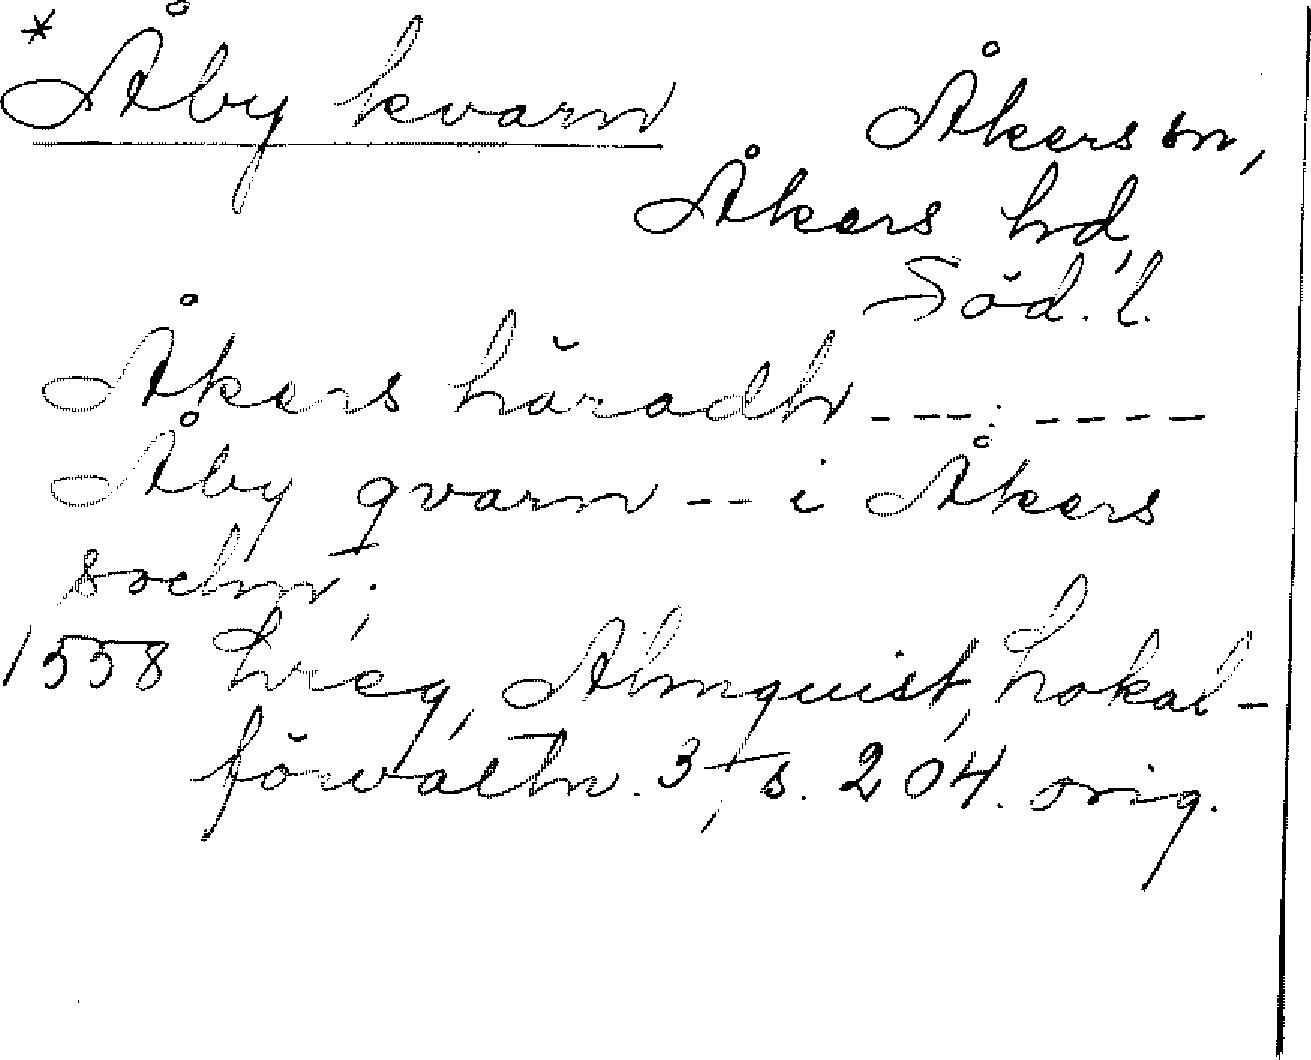 * Åby kvarn
Åkers sn,
Åkers hd,
Söd. l.
Åkers häradh ---: ----
Åby qvarn -- i Åkers
sochn;
1558 hreg, Almquist, Lokal-
förvaltn. 3, s. 204. orig.